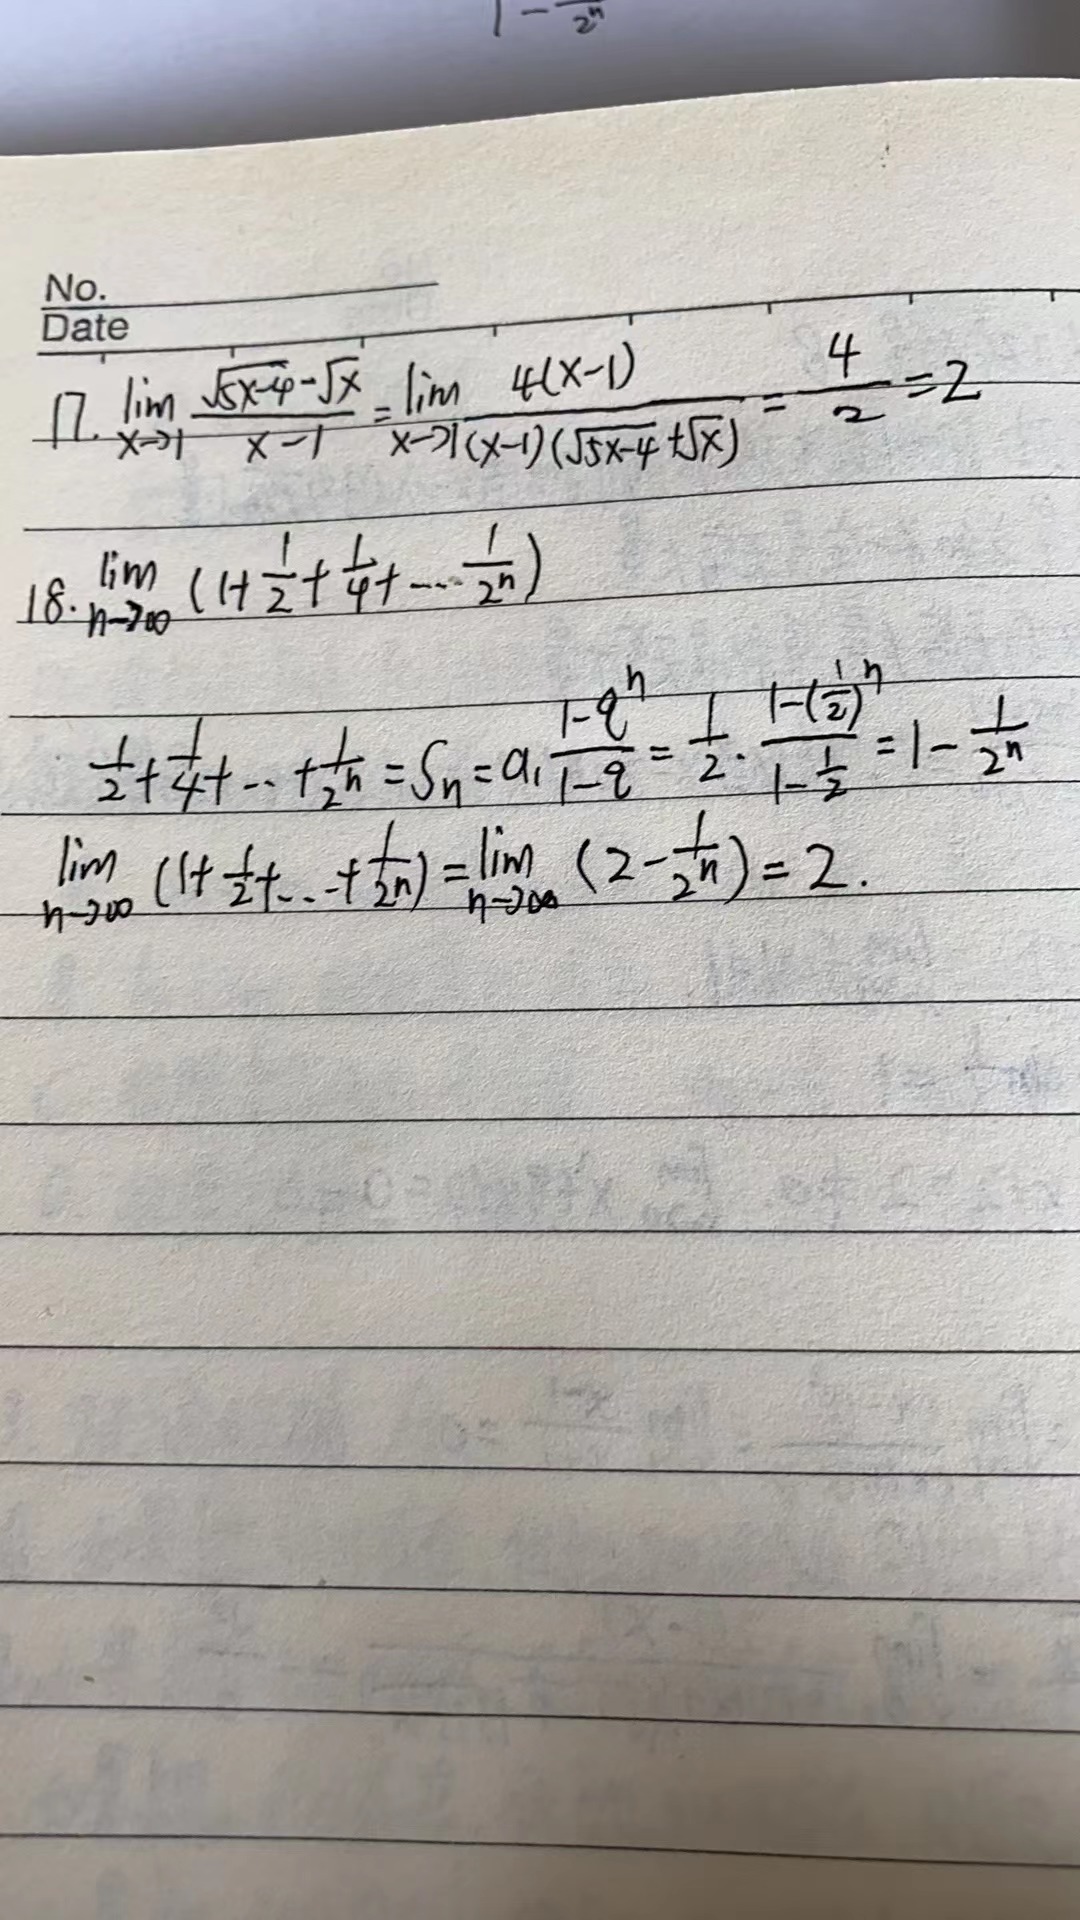 1 - 1/2ⁿ
No.
Date
17. lim x→1 (√(5x-4) - √x)/(x-1) = lim x→1 4(x-1)/((x-1)(√(5x-4) + √x)) = 4/2 = 2
18. lim n→∞ (1 + 1/2 + 1/4 + ... 1/2ⁿ)
1/2 + 1/4 + ... + 1/2ⁿ = Sₙ = a₁ (1-qⁿ)/(1-q) = 1/2 · (1-(1/2)ⁿ)/(1-1/2) = 1 - 1/2ⁿ
lim n→∞ (1 + 1/2 + ... + 1/2ⁿ) = lim n→∞ (2 - 1/2ⁿ) = 2.